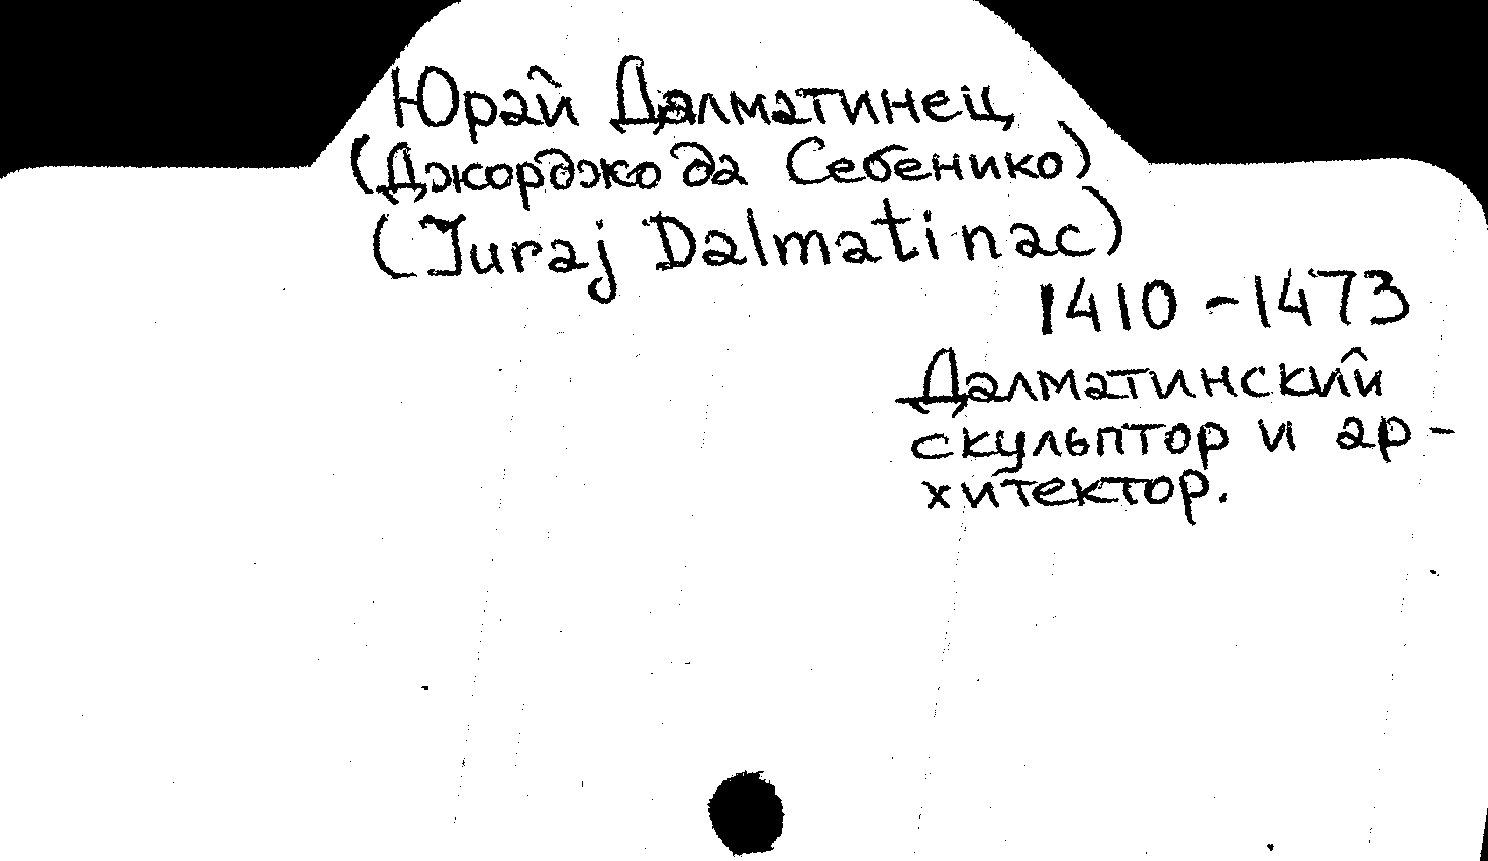 Юрай Далматинец
(Джорджо да Себенико)
(Juraj Dalmatinac)
1410 - 1473
Далматинский
скульптор и ар-
хитектор.